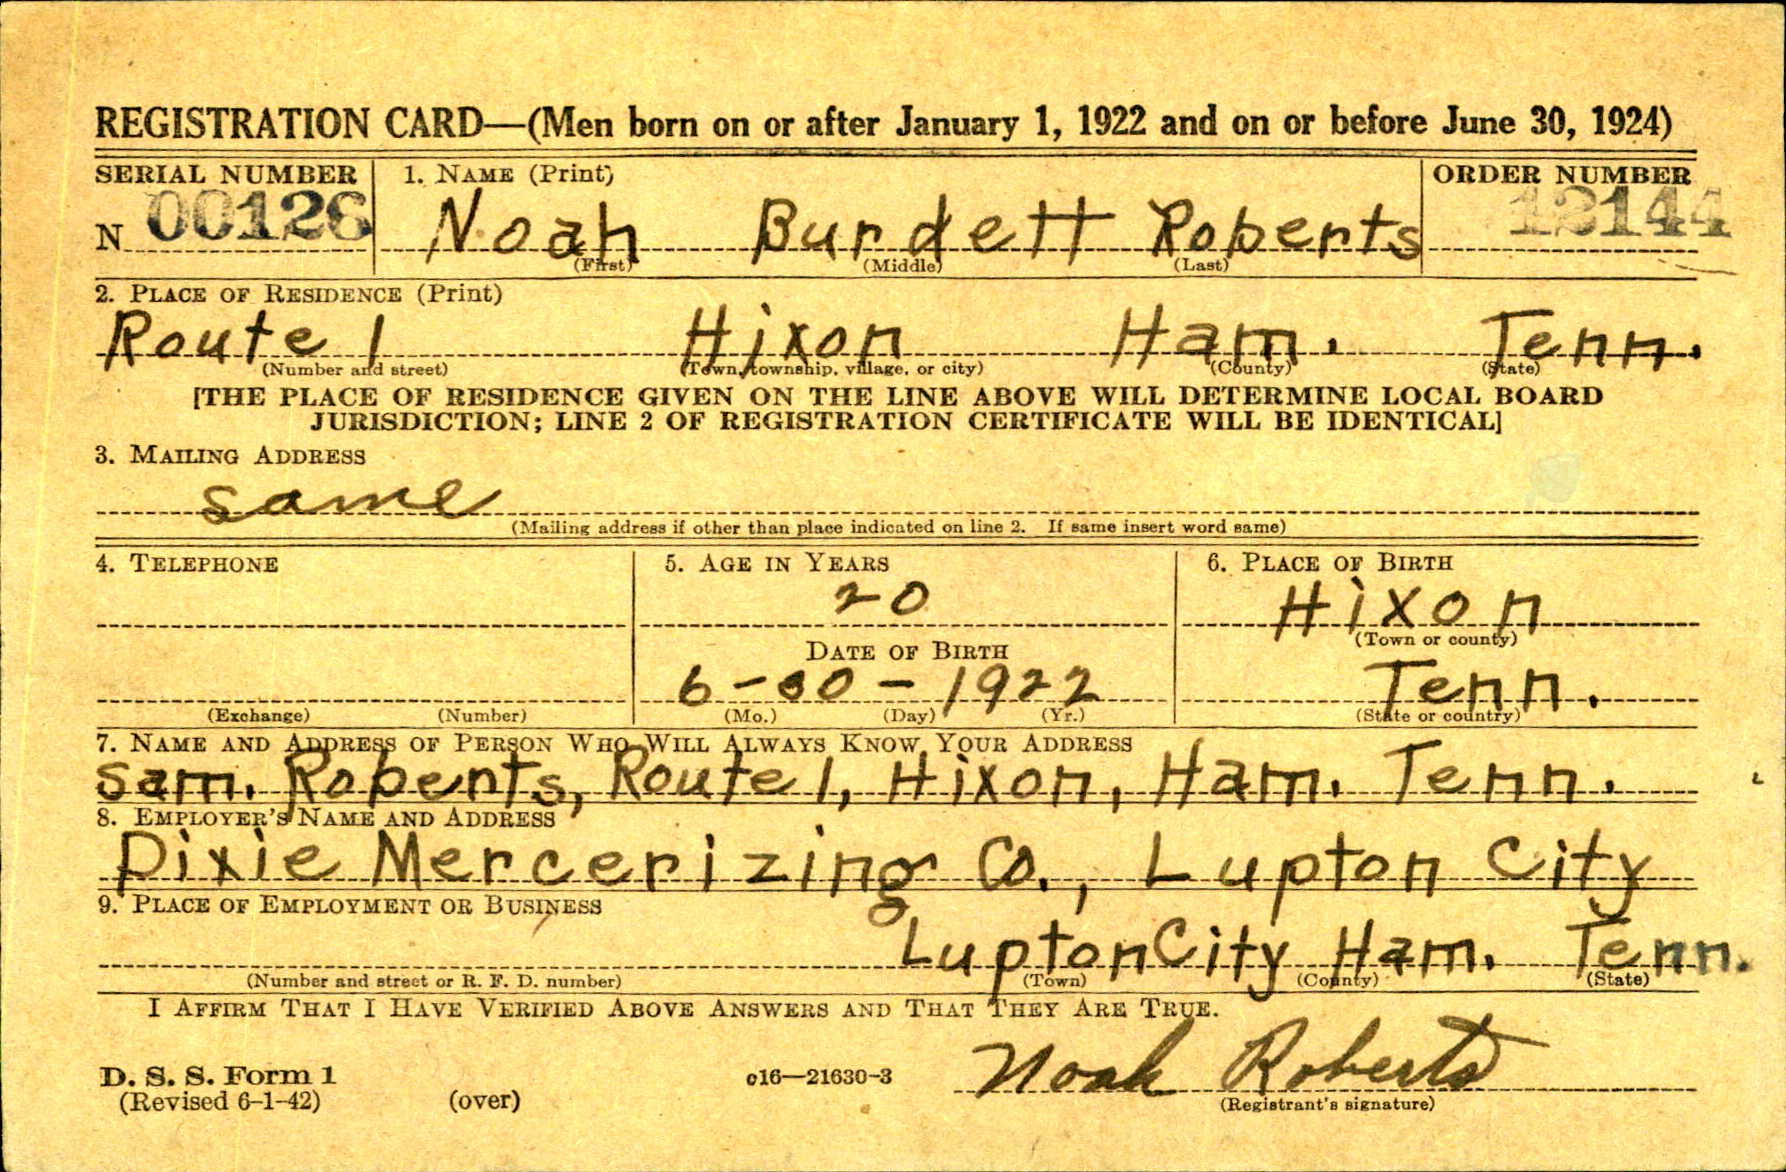 REGISTRATION CARD—(Men born on or after January 1, 1922 and on or before June 30, 1924)
SERIAL NUMBER 1. NAME (Print) ORDER NUMBER
N 00126 Noah Burdett Roberts 12144
(First) (Middle) (Last)
2. PLACE OF RESIDENCE (Print)
Route 1 Hixon Ham. Tenn.
(Number and street) (Town, township, village, or city) (County) (State)
[THE PLACE OF RESIDENCE GIVEN ON THE LINE ABOVE WILL DETERMINE LOCAL BOARD
JURISDICTION; LINE 2 OF REGISTRATION CERTIFICATE WILL BE IDENTICAL]
3. MAILING ADDRESS
same
(Mailing address if other than place indicated on line 2. If same insert word same)
4. TELEPHONE 5. AGE IN YEARS 6. PLACE OF BIRTH
20 Hixon
(Town or county)
DATE OF BIRTH
6-30-1922 Tenn.
(Exchange) (Number) (Mo.) (Day) (Yr.) (State or country)
7. NAME AND ADDRESS OF PERSON WHO WILL ALWAYS KNOW YOUR ADDRESS
Sam. Roberts, Route 1, Hixon, Ham. Tenn.
8. EMPLOYER'S NAME AND ADDRESS
Dixie Mercerizing Co., Lupton City
9. PLACE OF EMPLOYMENT OR BUSINESS
Lupton City Ham. Tenn.
(Number and street or R. F. D. number) (Town) (County) (State)
I AFFIRM THAT I HAVE VERIFIED ABOVE ANSWERS AND THAT THEY ARE TRUE.
D. S. S. Form 1
(Revised 6-1-42) (over) c16—21630-3 Noah Roberts
(Registrant's signature)